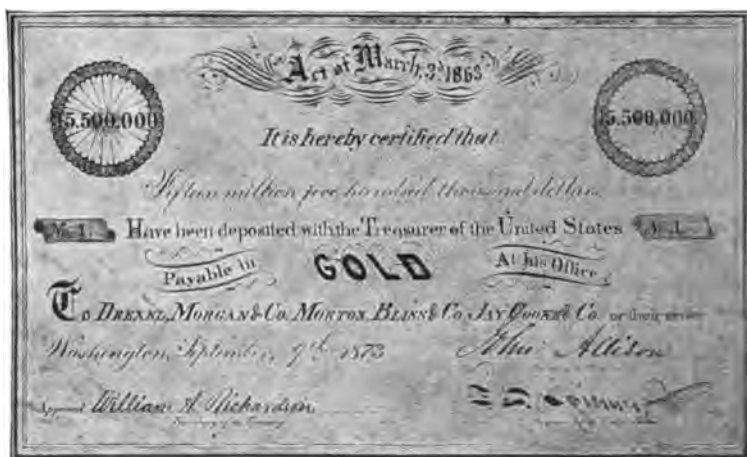 Act of March, 3d 1863
15.500,000 15.500,000
It is hereby certified that
Fifteen million five hundred thousand dollars
No. 1. Have been deposited with the Treasurer of the United States No. 1.
Payable in GOLD At his Office
To DREXEL, MORGAN & Co. MORTON, BLISS & Co. JAY COOKE & Co. or their order
Washington, September, 9th 1873 John Allison
William A. Richardson